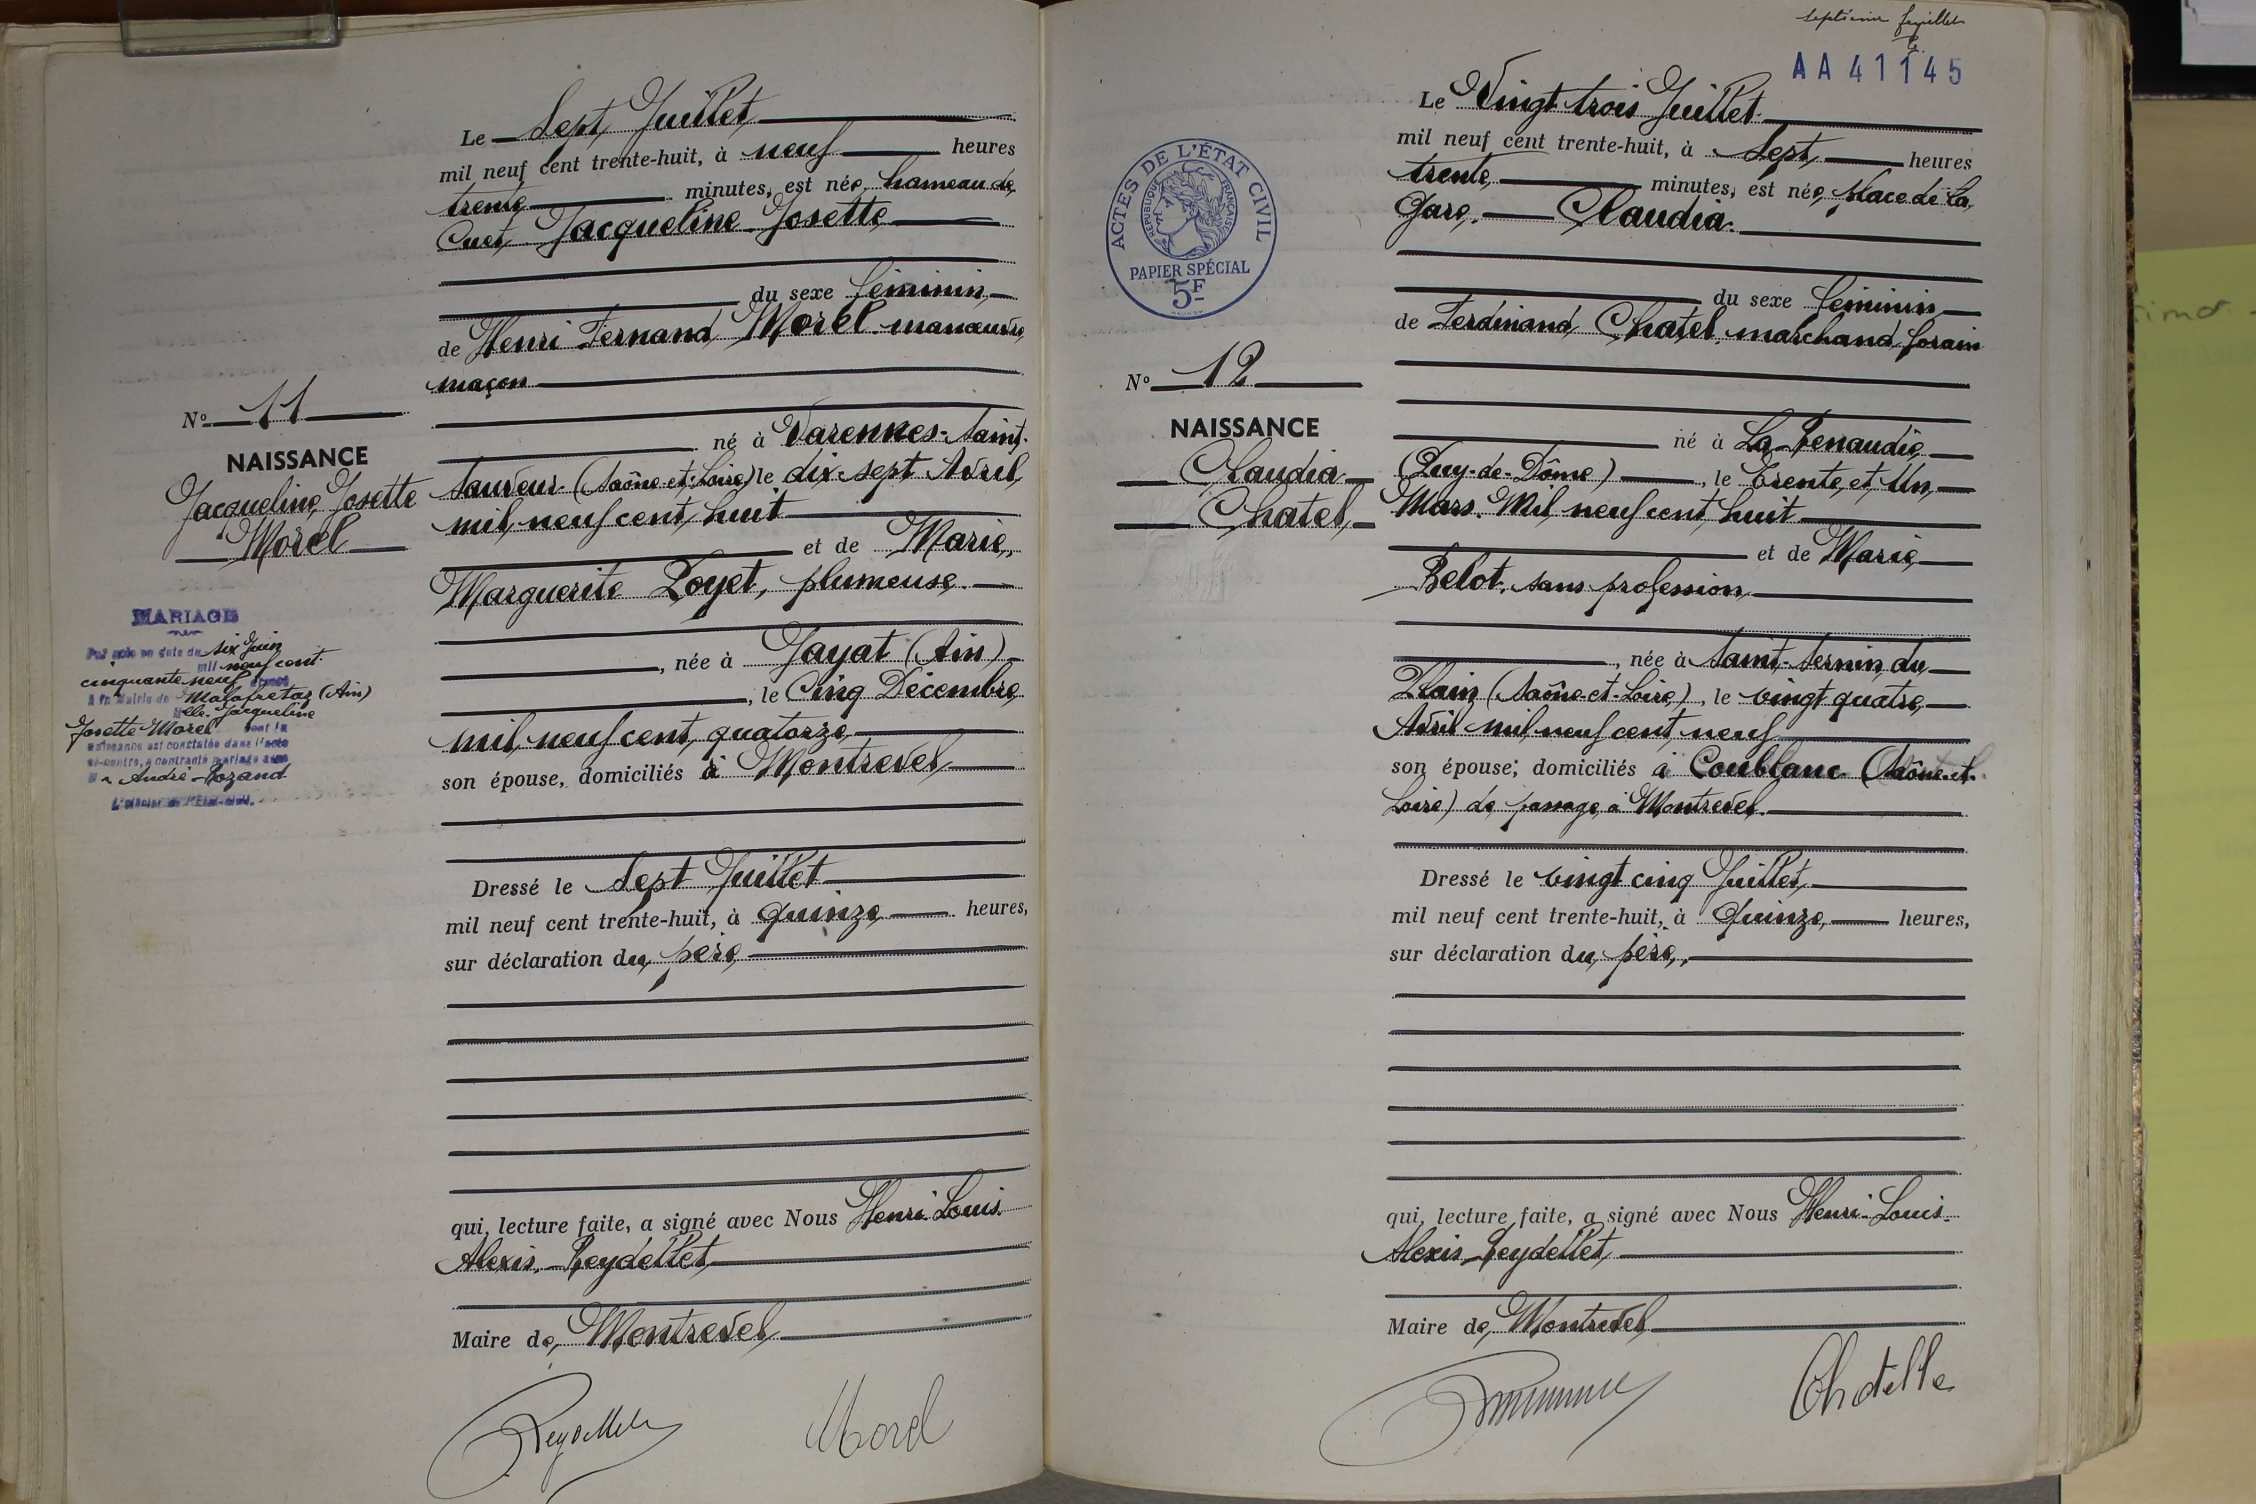 Le Sept Juillet
mil neuf cent trente-huit, à neuf heures
trente minutes, est née, hameau de
Cuet, Jacqueline Josette
du sexe féminin
de Henri Fernand Morel manœuvre
maçon
né à Varennes-Saint-
Sauveur (Saône-et-Loire) le dix-sept Avril
mil neuf cent huit
et de Marie,
Marguerite Poyet, plumeuse.
, née à Jayat (Ain)
, le Cinq Décembre
mil neuf cent quatorze
son épouse, domiciliés à Montrevel
Dressé le Sept Juillet
mil neuf cent trente-huit, à quinze heures,
sur déclaration du père
qui, lecture faite, a signé avec Nous Henri-Louis-
Alexis Reydellet
Maire de Montrevel
Reydellet Morel
Nº 11
NAISSANCE
Jacqueline Josette
Morel
MARIAGE
Par acte en date du six Juin
mil neuf cent
cinquante neuf
à la Mairie de Malafretaz (Ain)
Melle Jacqueline
Josette Morel dont la
naissance est constatée dans l'acte
ci-contre, a contracté mariage avec
Mr André Rozand
L'officier de l'État-civil.
septième feuillet
AA 41145
Le Vingt trois Juillet
mil neuf cent trente-huit, à Sept heures
trente minutes, est née, place de la
Gare, Claudia.
du sexe féminin
de Ferdinand Chatel, marchand forain
né à La Renaudie
(Puy-de-Dôme) , le Trente et Un
Mars Mil neuf cent huit
et de Marie
Belot, sans profession
, née à Saint-Sernin du
Plain (Saône-et-Loire) , le vingt quatre
Avril mil neuf cent neuf
son épouse; domiciliés à Coublanc (Saône-et-
Loire) de passage à Montrevel.
Dressé le vingt cinq Juillet
mil neuf cent trente-huit, à Quinze heures,
sur déclaration du père,
qui, lecture faite, a signé avec Nous Henri-Louis-
Alexis Reydellet
Maire de Montrevel
Chatelle
ACTES DE L'ÉTAT CIVIL
RÉPUBLIQUE FRANÇAISE
PAPIER SPÉCIAL
5F
Nº 12
NAISSANCE
Claudia
Chatel